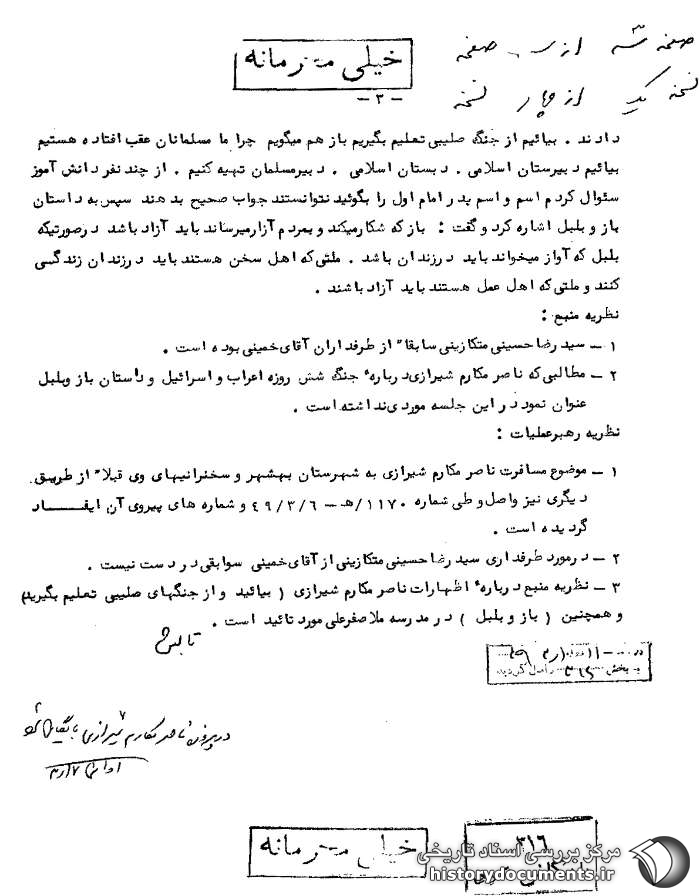 صفحه سه از سه صفحه
نسخه یک از چهار نسخه
خیلی محرمانه
-۳-
دادند . بیائیم از جنگ صلیبی تعلیم بگیریم باز هم میگویم چرا ما مسلمانان عقب افتاده هستیم
بیائیم دبیرستان اسلامی . دبستان اسلامی . دبیرمسلمان تهیه کنیم . از چند نفر دانش آموز
سئوال کردم اسم و اسم پدر امام اول را بگوئید نتوانستند جواب صحیح بدهند سپس به داستان
باز و بلبل اشاره کرد و گفت : باز که شکارمیکند و بمردم آزارمیرساند باید آزاد باشد درصورتیکه
بلبل که آواز میخواند باید درزندان باشد . ملتی که اهل سخن هستند باید درزندان زندگسی
کنند و ملتی که اهل عمل هستند باید آزاد باشند .
نظریه منبع :
۱ – سید رضا حسینی متکازینی سابقا" از طرفداران آقای خمینی بوده است .
۲ – مطالبی که ناصر مکارم شیرازی درباره ٔ جنگ شش روزه اعراب و اسرائیل و داستان باز وبلبل
عنوان نمود در این جلسه موردی نداشته است .
نظریه رهبرعملیات :
۱ – موضوع مسافرت ناصر مکارم شیرازی به شهرستان بهشهر و سخنرانیهای وی قبلا" از طریـق
دیگری نیز واصل و طی شماره ۱۱۷۰/هـ – ۴۹/۳/۶ و شماره های پیروی آن ایفـــاد
گردیده است .
۲ – درمورد طرفداری سید رضا حسینی متکازینی از آقای خمینی سوابقی در دست نیست .
۳ – نظریه منبع درباره ٔ اظهارات ناصر مکارم شیرازی ( بیائید و از جنگهای صلیبی تعلیم بگیرید)
و همچنین ( باز و بلبل ) در مدرسه ملا صفرعلی مورد تائید است .
به بخش ۳۱۶ واصل گردید
در پرونده ناصر مکارم شیرازی بایگانی شود
خیلی محرمانه
۳۱۶
مرکز بررسی اسناد تاریخی
historydocuments.ir